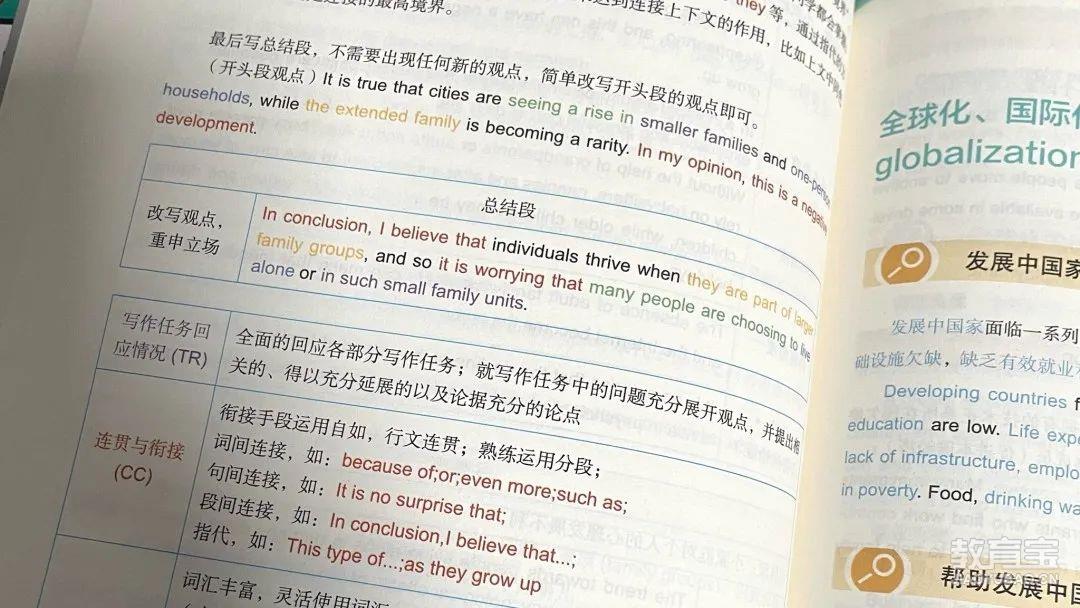 的最高境界。
到连接上下文的作用，比如上文中
they 等，通过指代的
最后写总结段，不需要出现任何新的观点，简单改写开头段的观点即可。
（开头段观点）It is true that cities are seeing a rise in smaller families and one-person
households, while the extended family is becoming a rarity. In my opinion, this is a negative
development.
总结段
改写观点，
重申立场
In conclusion, I believe that individuals thrive when they are part of larger
family groups, and so it is worrying that many people are choosing to live
alone or in such small family units.
写作任务回
应情况 (TR)
全面的回应各部分写作任务；就写作任务中的问题充分展开观点，并提出相
关的、得以充分延展的以及论据充分的论点
连贯与衔接
(CC)
衔接手段运用自如，行文连贯；熟练运用分段；
词间连接，如：because of;or;even more;such as;
句间连接，如：It is no surprise that;
段间连接，如：In conclusion,I believe that...;
指代，如：This type of...;as they grow up
词汇丰富，灵活使用词汇
全球化、国际
globalization
发展中国家
发展中国家面临一系列
础设施欠缺，缺乏有效就业
Developing countries
education are low. Life
lack of infrastructure,
in poverty. Food, drinking
帮助发展中
教育宝